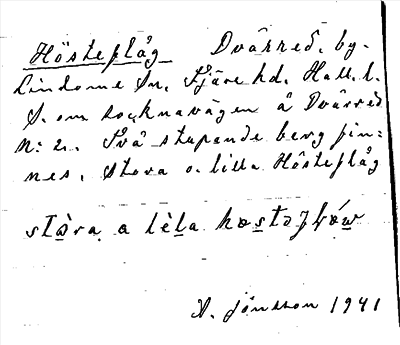 Hösteflåg Dvärred. by.
Lindome Sn. Fjäre hd. Hall. l.
S. om socknavägen å Dvärred
N: 2. Två stupande berg fin=
nes. Stora o. lilla Hösteflåg
stòra a lèla
A. Jönsson 1941